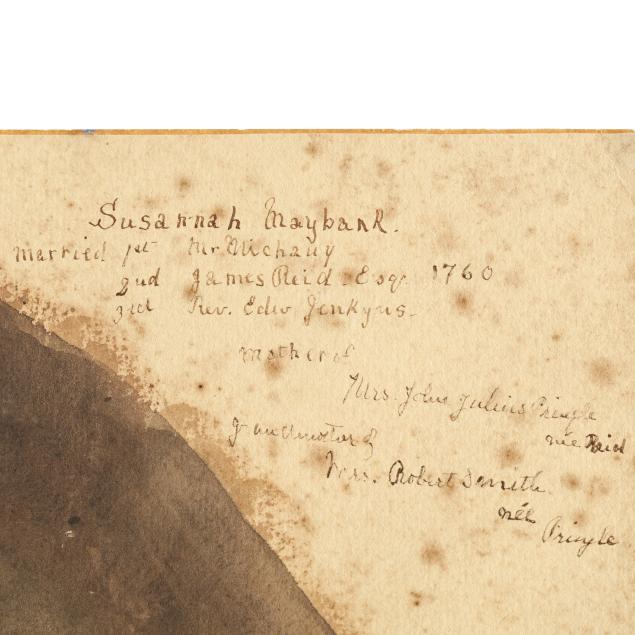 Susannah Maybank.
married 1st Mr
2nd James Reid. Esqr. 1760
3rd Rev. Edw Jenkyns.
mother of
Mrs. John Julius Pringle
née Reid
grandmother of
Mrs. Robert Smith
née
Pringle